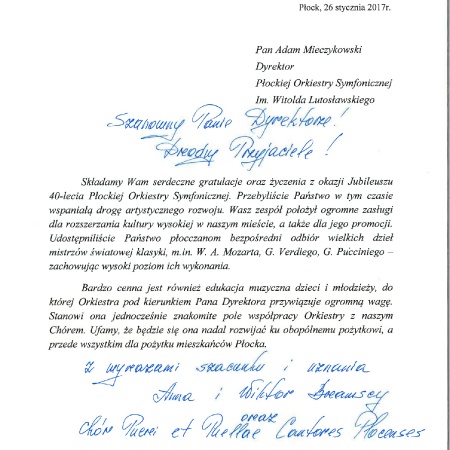 Płock, 26 stycznia 2017r.
Pan Adam Mieczykowski
Dyrektor
Płockiej Orkiestry Symfonicznej
Im. Witolda Lutosławskiego
Szanowny Panie Dyrektorze!
Drodzy Przyjaciele!
Składamy Wam serdeczne gratulacje oraz życzenia z okazji Jubileuszu
40-lecia Płockiej Orkiestry Symfonicznej. Przebyliście Państwo w tym czasie
wspaniałą drogę artystycznego rozwoju. Wasz zespół położył ogromne zasługi
dla rozszerzania kultury wysokiej w naszym mieście, a także dla jego promocji.
Udostępniliście Państwo płocczanom bezpośredni odbiór wielkich dzieł
mistrzów światowej klasyki, m.in. W. A. Mozarta, G. Verdiego, G. Pucciniego –
zachowując wysoki poziom ich wykonania.
Bardzo cenna jest również edukacja muzyczna dzieci i młodzieży, do
której Orkiestra pod kierunkiem Pana Dyrektora przywiązuje ogromną wagę.
Stanowi ona jednocześnie znakomite pole współpracy Orkiestry z naszym
Chórem. Ufamy, że będzie się ona nadal rozwijać ku obopólnemu pożytkowi, a
przede wszystkim dla pożytku mieszkańców Płocka.
z wyrazami szacunku i uznania
Anna i Wiktor Bramscy
oraz
Chór Pueri et Puellae Cantores Plocenses